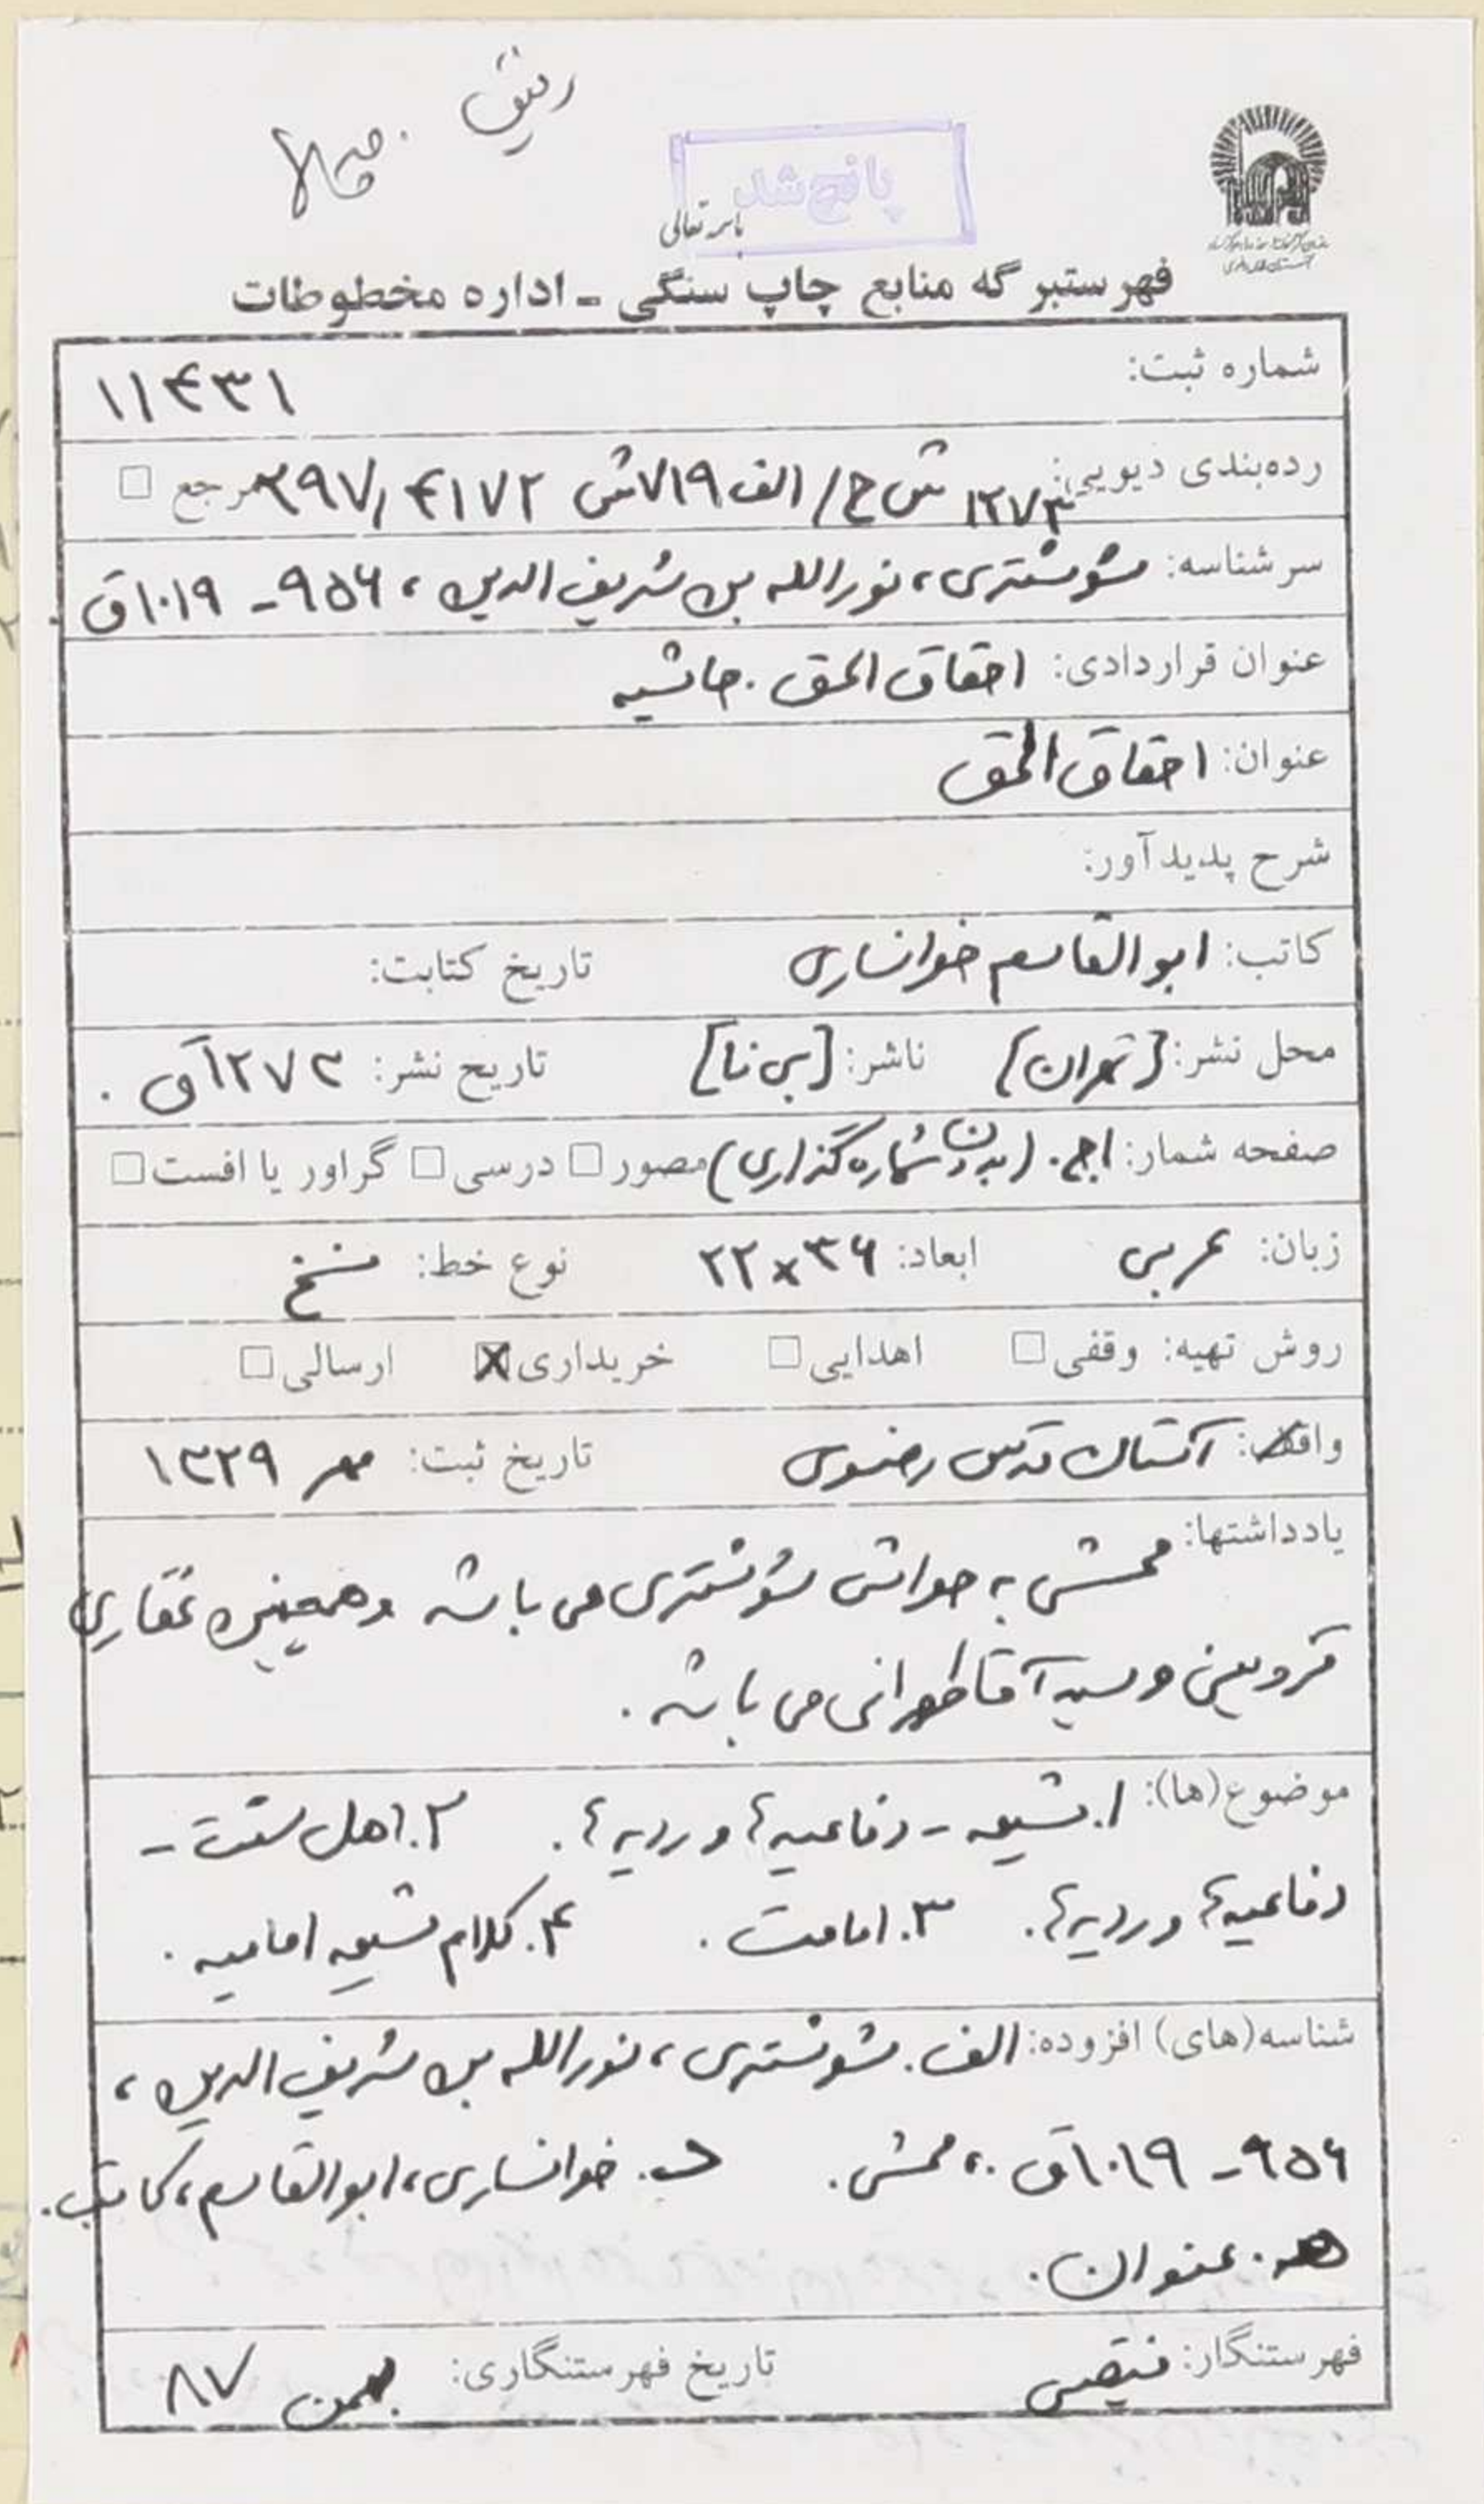 پانچ شد
باسمه تعالی
فهرستبرگه منابع چاپ سنگی - اداره مخطوطات
شماره ثبت: ۱۱۴۳۱
رده‌بندی دیویی: ۲۹۷/۴۱۷۲ ش۷۱۹الف/ش ح ۱۲۷۳ مرجع □
سرشناسه: شوشتری، نورالله بن شریف الدین، ۹۵۶ - ۱۰۱۹ق.
عنوان قراردادی: احقاق الحق. حاشیه
عنوان: احقاق الحق
شرح پدیدآور:
کاتب: ابوالقاسم خوانساری تاریخ کتابت:
محل نشر: [تهران] ناشر: [بی نا] تاریخ نشر: ۱۲۷۳ق.
صفحه شمار: ۱ج. (بدون شماره گذاری) مصور □ درسی □ گراور یا افست □
زبان: عربی ابعاد: ۲۲×۳۶ نوع خط: نسخ
روش تهیه: وقفی □ اهدایی □ خریداری ☒ ارسالی □
واقف: آستان قدس رضوی تاریخ ثبت: مهر ۱۳۲۹
یادداشتها: محشی به حواشی شوشتری می باشد و همچنین غفاری
قزوینی و سید آقا طهرانی می باشد.
موضوع(ها): ۱. شیعه - دفاعیه‌ها و ردیه‌ها. ۲. اهل سنت -
دفاعیه‌ها و ردیه‌ها. ۳. امامت. ۴. کلام شیعه امامیه.
شناسه(های) افزوده: الف. شوشتری، نورالله بن شریف الدین،
۹۵۶ - ۱۰۱۹ق.، محشی. ب. خوانساری، ابوالقاسم، کاتب.
عنوان.
فهرستنگار: تاریخ فهرستنگاری: بهمن ۸۷